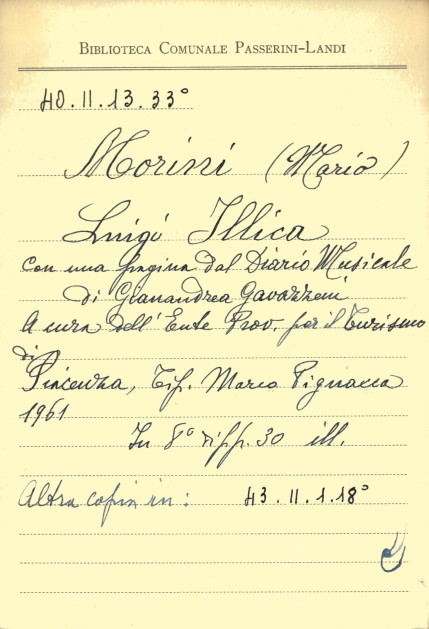 BIBLIOTECA COMUNALE PASSERINI-LANDI
40.II.13.33°
Morini (Mario)
Luigi Illica
con una pagina dal Diario Musicale
di Gianandrea Gavazzeni
A cura dell'Ente Prov. per il Turismo
di
Piacenza, Tip. Marco Pignacca
1961
In 8° di pp. 30 ill.
Altra copia in: 43.II.1.18°